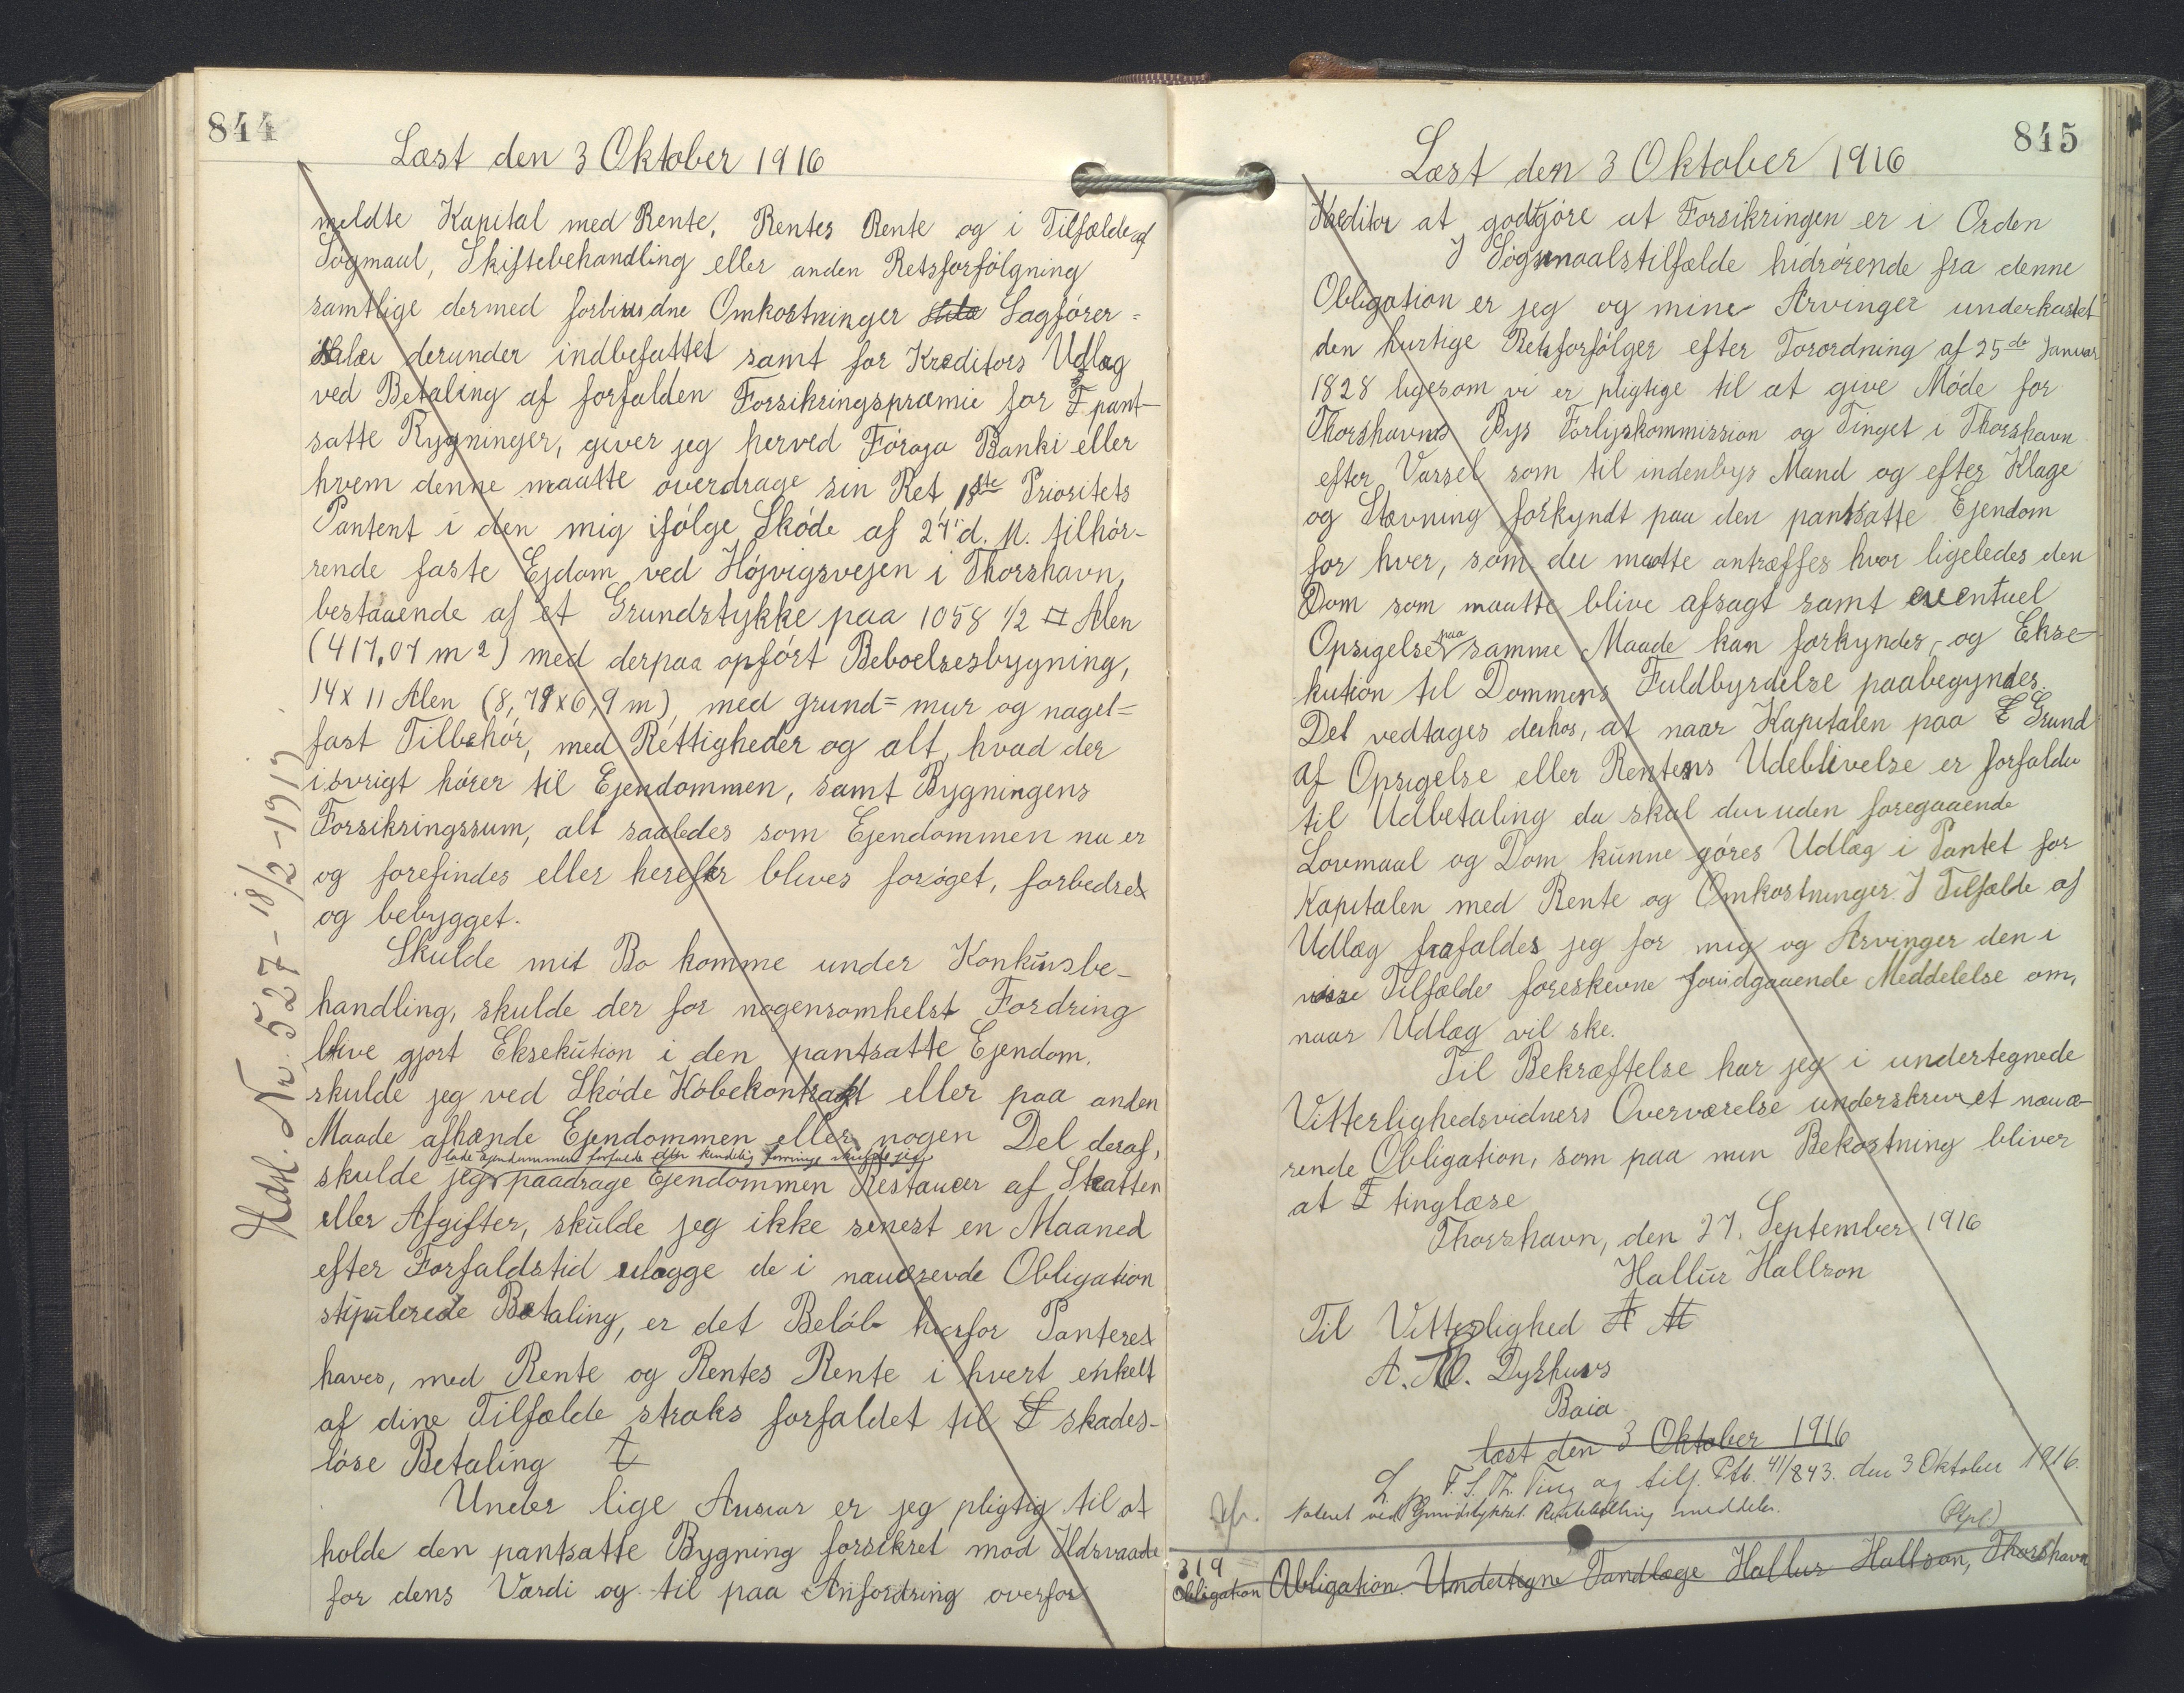 844
Læst den 3 Oktober 1916
meldte Kapital med Rente, Rentes Rente og i Tilfælde af
Sögmaal, Skiftebehandling eller anden Retsforfölgning
samtlige dermed forbundne Omkostninger Sagförer=
salær derunder indbefattet samt for Kreditors Udlæg
ved Betaling af forfalden Forsikringspræmie for pant-
satte Bygninger, giver jeg herved Föroja Banki eller
hvem denne maatte overdrage sin Ret 1ste Prioritets
Panteret i den mig ifölge Sköde af 24' d. M. tilhör-
rende faste Ejdom ved Höjvigsvejen i Thorshavn,
bestaaende af et Grundstykke paa 1058 1/2 □ Alen
(417,07 m2) med derpaa opfört Beboelsesbygning,
14 x 11 Alen (8,78 x 6,9 m), med grund= mur og nagel=
fast Tilbehör, med Rettigheder og alt, hvad der
iövrigt hörer til Ejendommen, samt Bygningens
Forsikringssum, alt saaledes som Ejendommen nu er
og forefindes eller herefter blives foröget, forbedret
og bebygget.
Skulde mit Bo komme under Konkursbe-
handling, skulde der for nogensomhelst Fordring
blive gjort Eksekution i den pantsatte Ejendom,
skulde jeg ved Sköde Köbekontrakt eller paa anden
Maade afhænde Ejendommen eller nogen Del deraf,
lade Ejendommen forfalde eller kendelig forringe skulde jeg
skulde jeg paadrage Ejendommen Restancer af Skatter
eller Afgifter, skulde jeg ikke senest en Maaned
efter Forfaldstid erlægge de i nærværende Obligation
stipulerede Betaling, er det Belöb hvorfor Panteret
haves, med Rente og Rentes Rente i hvert enkelt
af dine Tilfælde straks forfaldet til skades-
löse Betaling
Under lige Ansvar er jeg pligtig til at
holde den pantsatte Bygning forsikret mod Ildsvaade
for dens Værdi og til paa Anfordring overfor
Udsl. Nr. 527 - 18/2 - 1917
845
Læst den 3 Oktober 1916
Kreditor at godtgjöre at Forsikringen er i Orden
I Sögsmaalstilfælde hidrörende fra denne
Obligation er jeg og mine Arvinger underkastet
den hurtige Retsforfölger efter Forordning af 25de Januar
1828 ligesom vi er pligtige til at give Möde for
Thorshavns Bys Forligskommission og Tinget i Thorshavn
efter Varsel som til indenbys Mand og efter Klage
og Stævning forkyndt paa den pantsatte Ejendom
for hver, som der maatte antræffes hvor ligeledes den
Dom som maatte blive afsagt samt eventuel
Opsigelse paa samme Maade kan forkyndes, og Ekse-
kution til Dommens Fuldbyrdelse paabegyndes.
Det vedtages derhos, at naar Kapitalen paa Grund
af Opsigelse eller Rentens Udeblivelse er forfalden
til Udbetaling da skal der uden foregaaende
Lovmaal og Dom kunne göres Udlæg i Pantet for
Kapitalen med Rente og Omkostninger. I Tilfælde af
Udlæg frafaldes jeg for mig og Arvinger den i
visse Tilfælde foreskevne forudgaaende Meddelelse om,
naar Udlæg vil ske.
Til Bekræftelse har jeg i undertegnede
Vitterlighedsvidners Overværelse underskrevet nævæ-
rende Obligation, som paa min Bekostning bliver
at tinglæse
Thorshavn, den 27. September 1916
Hallur Hallson
Til Vitterlighed
A. M. Dyrhuus
Baia
læst den 3 Oktober 1916
L p. F. S. Th. Ting og tilf. Ptb. 41/843. den 3 Oktober 1916.
Noteret ved Grundstykket. meddeles.
319
Obligation Obligation. Undertegne Tandlæge Hallur Hallson, Thorshavn